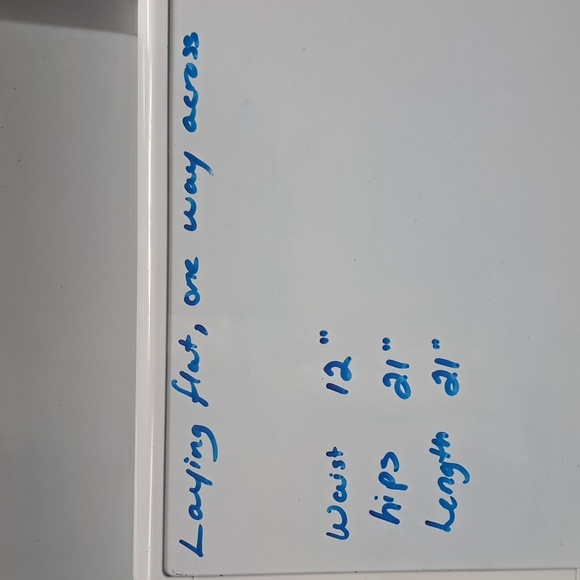 Laying flat, one way across
Waist 12"
hips 21"
Length 21"